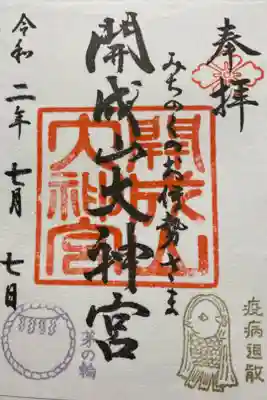 奉拝
みちのくのお伊勢さま
開成山大神宮
令和二年七月七日
開成山
大神宮
茅の輪
疫病退散